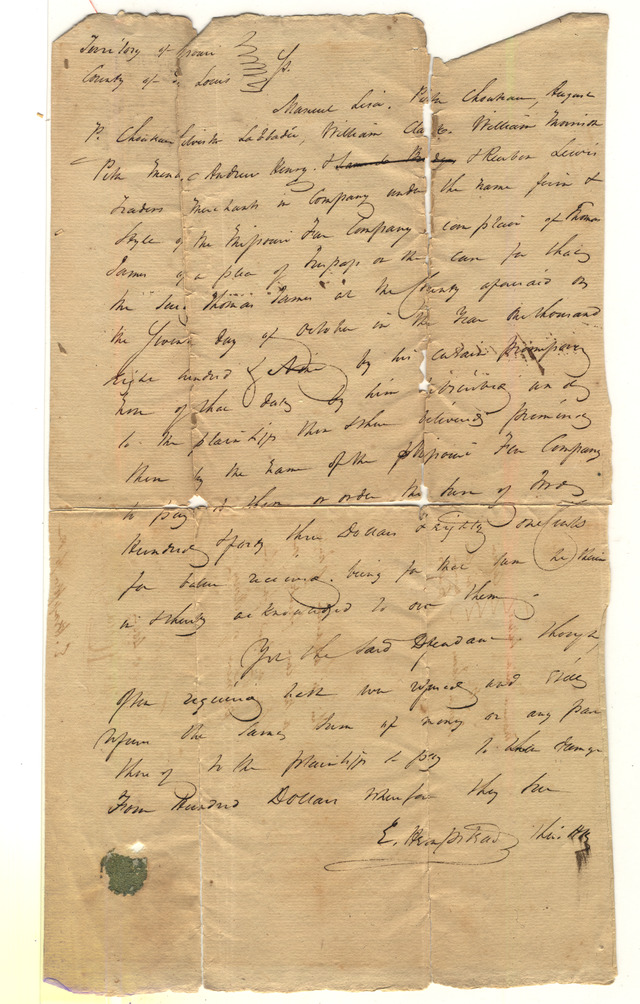 Territory of
County of St Louis } ss.
Manuel Lisa, Peter Chouteau, August
P. Chouteau Silvester Labbadie, William Clark William Morrison
Peter Menard Andrew Henry & & Reuben Lewis
traders Merchants in Company under the name firm &
Style of the Missouri Fur Company complain of Thomas
James of a plea of trespass on the case for that
the said Thomas James at the County aforesaid on
the Seventh day of October in the Year One thousand
eight hundred & by his certain promissory
note of that date by him subscribed and
to the plaintiffs then & there delivered promised
them by the name of the Missouri Fur Company
to pay to them or order the sum of Four
Hundred & forty three Dollars & Eighty one Cents
for value received, being for that sum he then
in & thereby acknowledged to owe them
Yet the said Defendant, though
often required hath ever refused and still
refuses the same sum of money or any part
there of to the plaintiffs to pay to their damage
Four Hundred Dollars Wherefore they sue
E. Hempstead their Atty